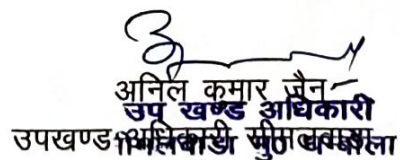 अनिल कुमार जैन
उप खण्ड अधिकारी
उपखण्ड अधिकारी सीमलवाडा